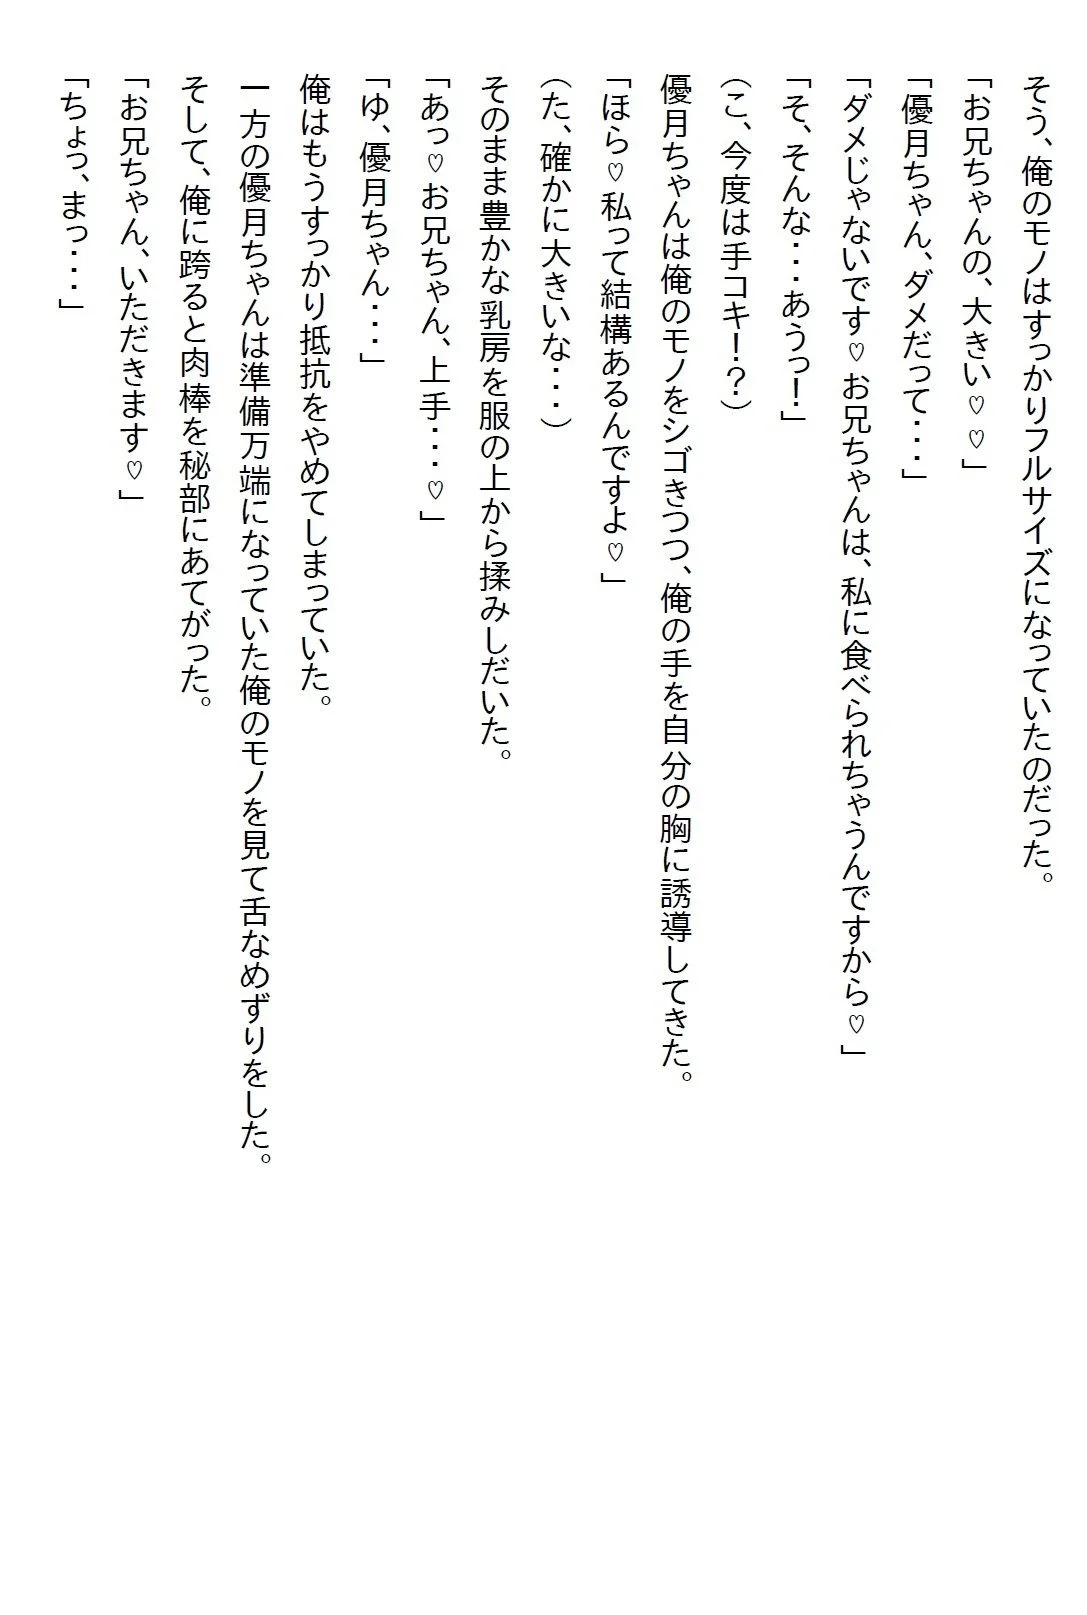 そう、俺のモノはすっかりフルサイズになっていたのだった。
「お兄ちゃんの、大きい♡♡」
「優月ちゃん、ダメだって・・・」
「ダメじゃないです♡お兄ちゃんは、私に食べられちゃうんですから♡」
「そ、そんな・・・あうっ！」
（こ、今度は手コキ！？）
優月ちゃんは俺のモノをシゴきつつ、俺の手を自分の胸に誘導してきた。
「ほら♡私って結構あるんですよ♡」
（た、確かに大きいな・・・）
そのまま豊かな乳房を服の上から揉みしだいた。
「あっ♡お兄ちゃん、上手・・・♡」
「ゆ、優月ちゃん・・・」
俺はもうすっかり抵抗をやめてしまっていた。
一方の優月ちゃんは準備万端になっていた俺のモノを見て舌なめずりをした。
そして、俺に跨ると肉棒を秘部にあてがった。
「お兄ちゃん、いただきます♡」
「ちょっ、まっ・・・」